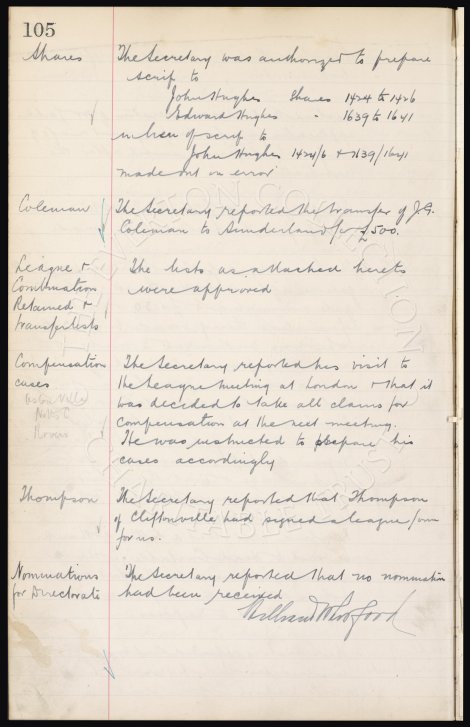 105
Shares The Secretary was authorized to prepare
scrip to
John Hughes Shares 1424 to 1426
Edward Hughes " 1639 to 1641
in lieu of scrip to
John Hughes 1424/6 + 1639/1641
made out in error
Coleman The Secretary reported the transfer of J.G.
Coleman to Sunderland for £500.
League + The lists as attached hereto
Combination were approved
Retained +
transfer lists
Compensation The Secretary reported his visit to
cases the League meeting at London + that it
Aston Villa was decided to take all claims for
Notts C compensation at the next meeting.
Rovers He was instructed to prepare his
cases accordingly
Thompson The Secretary reported that Thompson
of Cliftonville had signed a league form
for us.
Nominations The Secretary reported that no nomination
for Directorate had been received
THE EVERTON COLLECTION
CHARITABLE TRUST